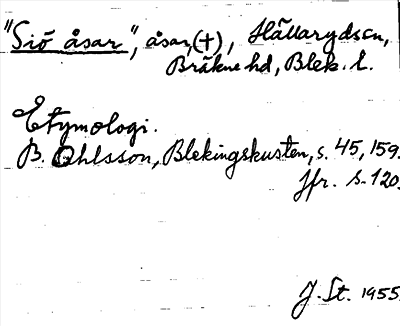 "Siö åsar", åsar, (+), Hällarydscn,
Bräkne hd, Blek. l.
Etymologi.
B. Ohlsson, Blekingskusten, s. 45, 159.
Jfr. s. 120.
J. St. 1955.